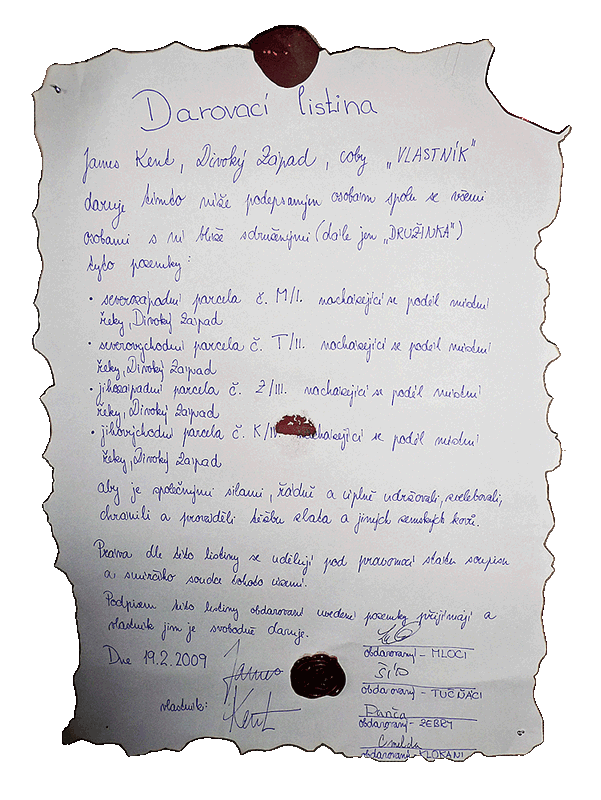 Darovací listina
James Kent, Divoký Západ, coby „VLASTNÍK"
daruje tímto níže podepsaným osobám spolu se všemi
osobami s ní blíže sdruženými (dále jen „DRUŽINKA")
tyto pozemky:
• severozápadní parcela č. M/I. nacházející se podél místní
řeky, Divoký Západ
• severovýchodní parcela č. T/II. nacházející se podél místní
řeky, Divoký Západ
• jihozápadní parcela č. Z/III. nacházející se podél místní
řeky, Divoký Západ
• jihovýchodní parcela č. nacházející se podél místní
řeky, Divoký Západ
aby je společnými silami, řádně a úplně udržovali, zvelebovali,
chránili a prováděli těžbu zlata a jiných zemských kovů.
Práva dle této listiny se udělují pod pravomocí státu
a smírčího soudce tohoto území.
Podpisem této listiny obdarovaní uvedené pozemky přijímají a
vlastník jim je svobodně daruje.
Dne 19.2.2009
James
vlastník: Kent
obdarovaný - MLOCI
ŠÍD
obdarovaný - TUČŇÁCI
Danča
obdarovaný - ZEBRY
obdarovaní KLOKANI